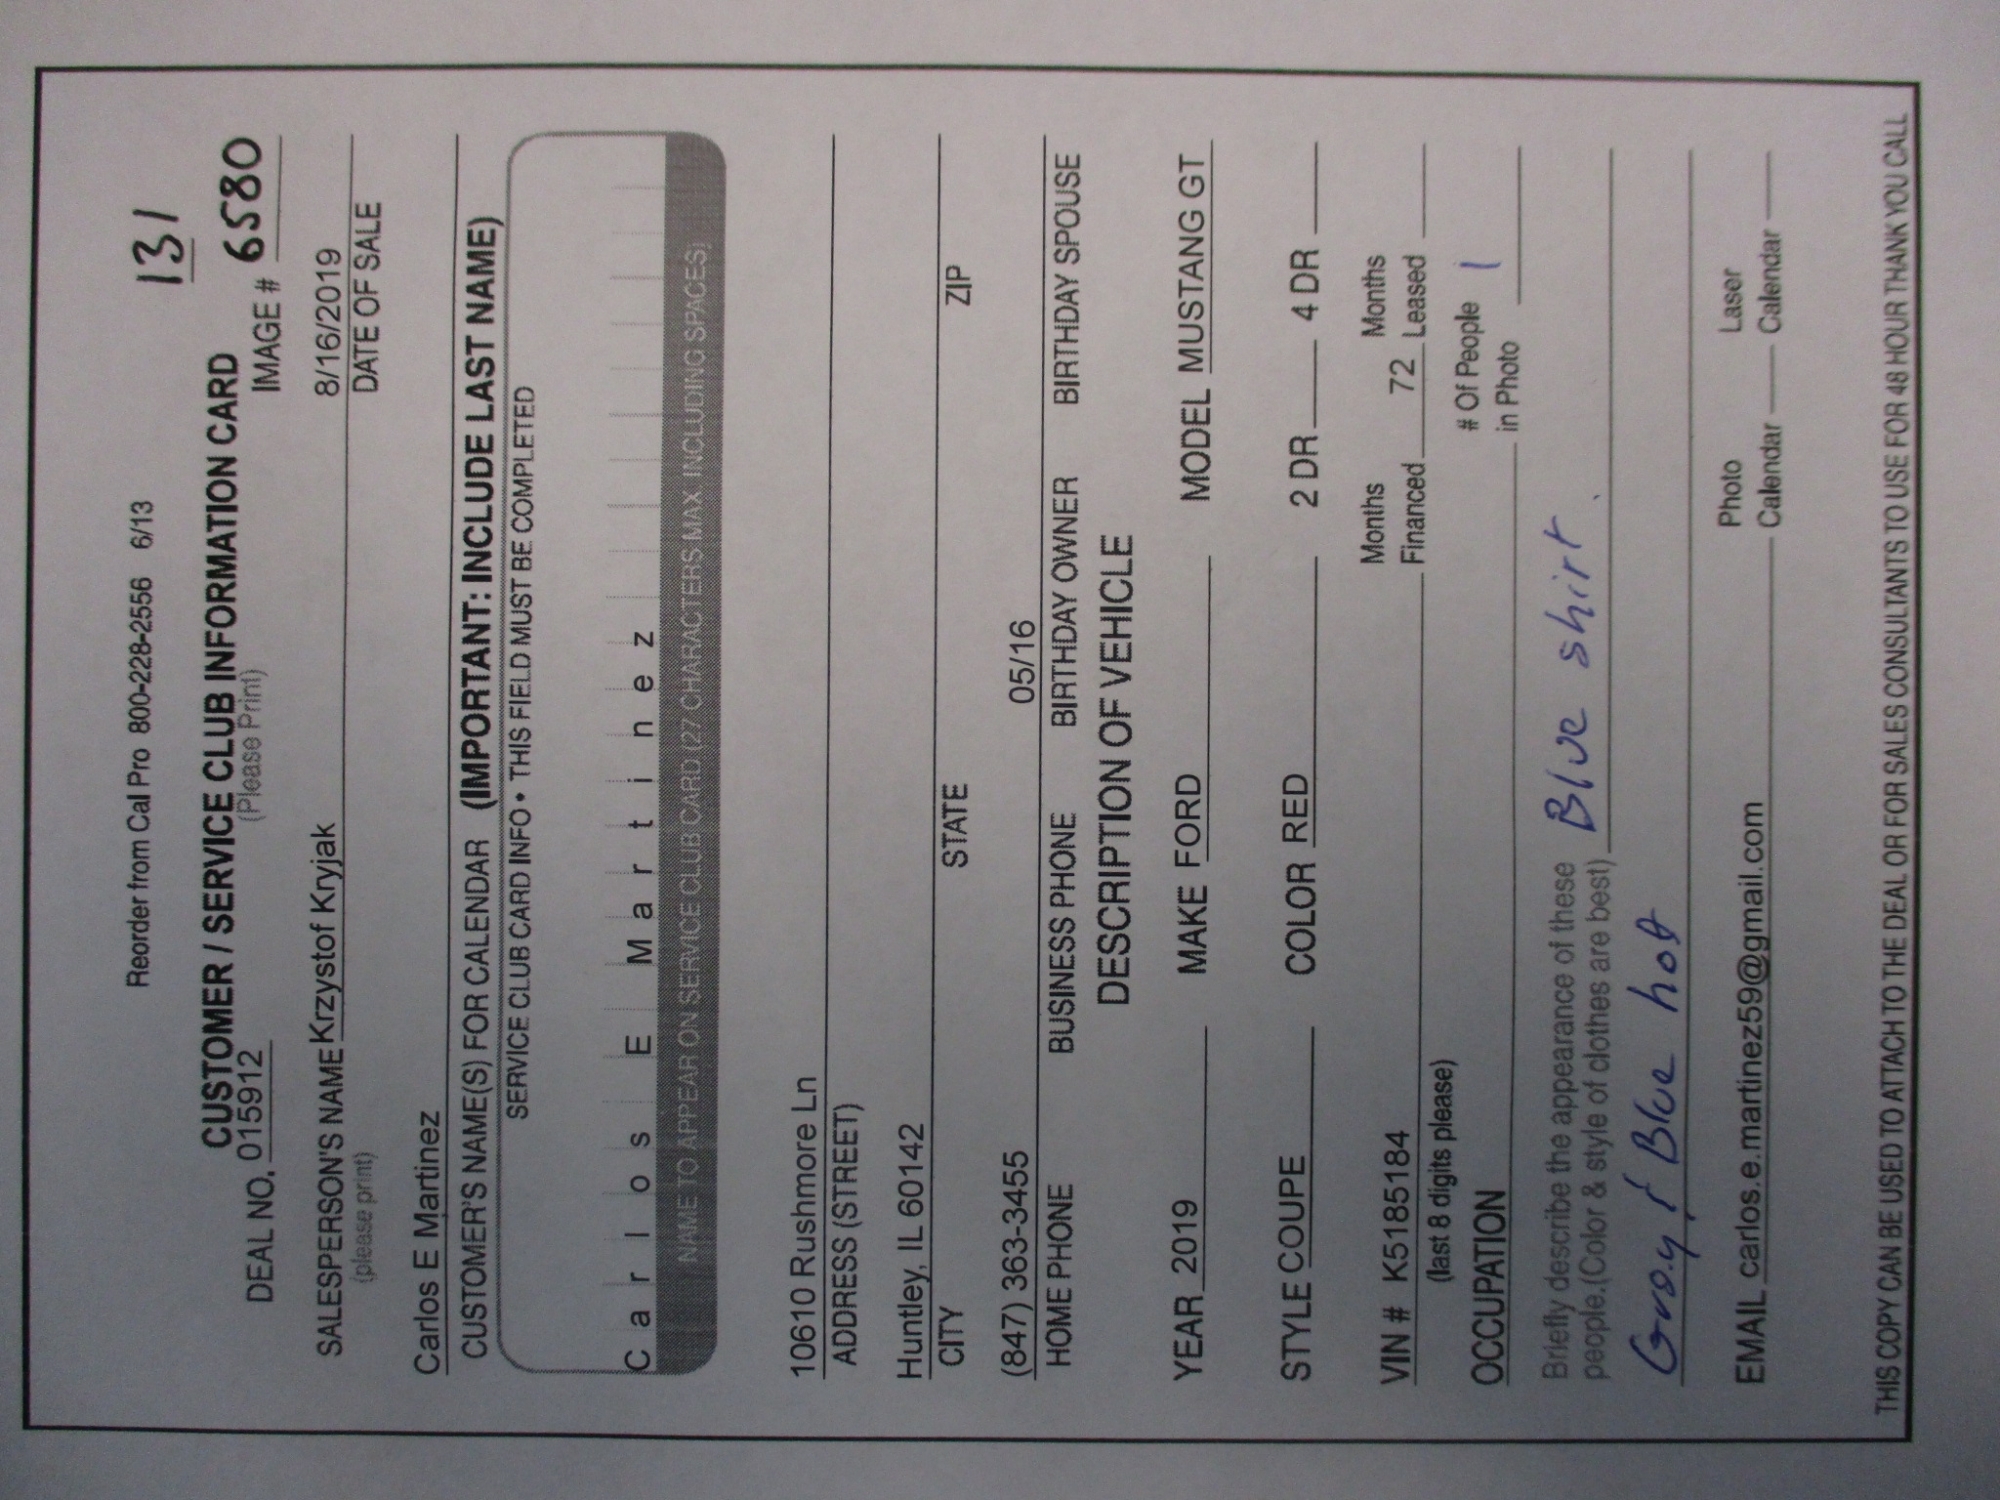 Reorder from Cal Pro 800-228-2556 6/13
131
CUSTOMER / SERVICE CLUB INFORMATION CARD
DEAL NO. 015912 (Please Print) IMAGE # 6580
SALESPERSON'S NAME Krzystof Kryjak 8/16/2019
(please print) DATE OF SALE
Carlos E Martinez
CUSTOMER'S NAME(S) FOR CALENDAR (IMPORTANT: INCLUDE LAST NAME)
SERVICE CLUB CARD INFO • THIS FIELD MUST BE COMPLETED
Carlos E Martinez
NAME TO APPEAR ON SERVICE CLUB CARD (27 CHARACTERS MAX. INCLUDING SPACES)
10610 Rushmore Ln
ADDRESS (STREET)
Huntley, IL 60142
CITY STATE ZIP
(847) 363-3455 05/16
HOME PHONE BUSINESS PHONE BIRTHDAY OWNER BIRTHDAY SPOUSE
DESCRIPTION OF VEHICLE
YEAR 2019 MAKE FORD MODEL MUSTANG GT
STYLE COUPE COLOR RED 2 DR 4 DR
Months Months
VIN # K5185184 Financed 72 Leased
(last 8 digits please) # Of People 1
OCCUPATION in Photo
Briefly describe the appearance of these Blue shirt
people.(Color & style of clothes are best)
Gray / Blue hat
Photo Laser
EMAIL carlos.e.martinez59@gmail.com Calendar Calendar
THIS COPY CAN BE USED TO ATTACH TO THE DEAL OR FOR SALES CONSULTANTS TO USE FOR 48 HOUR THANK YOU CALL